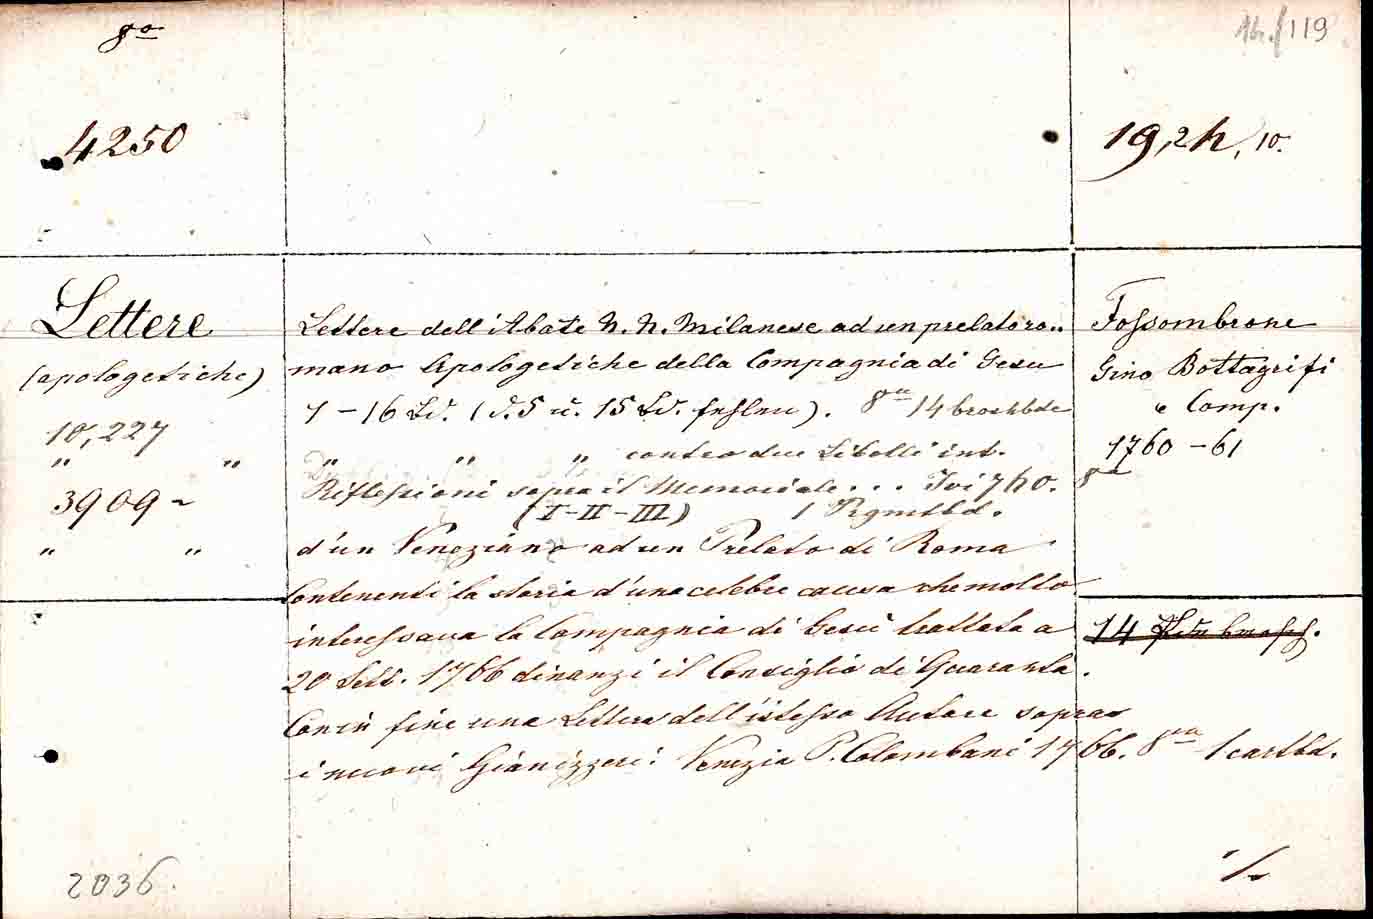 8o
119
4250
19,2h, 10.
Lettere
(apologetiche)
10,227
" "
3909
" "
Lettere dell'Abate N. N. Milanese ad un prelato ro..
mano Apologetiche della Compagnia di Gesu
1 – 16 Bd. (d. 5 u. 15 Bd. fehlen). 8vo 14 broshbde
" " " contro due Libelli int.
Riflessioni sopra il Memoriale ... Ivi 760.
(I-II-III) 1 Pgmtbd.
d'un Veneziano ad un Prelato di Roma
Contenenti la storia d'una celebre causa che molto
interessava la Compagnia di Gesù trattata a
20 Sett. 1766 dinanzi il Consiglio di Quaranta.
Con in fine una Lettera dell'istesso Autore sopra
i nuovi Gianizzeri: Venezia P. Colombani 1766. 8vo 1 cartbd.
Fossombrone
Gino Bottagrifi
e Comp.
1760 – 61
14
2036.